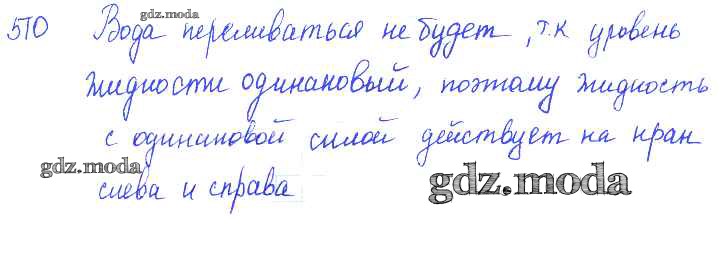 gdz.moda
510 Вода переливаться не будет, т.к уровень
жидкости одинаковый, поэтому жидкость
с одинаковой силой действует на кран
gdz.moda
слева и справа
gdz.moda